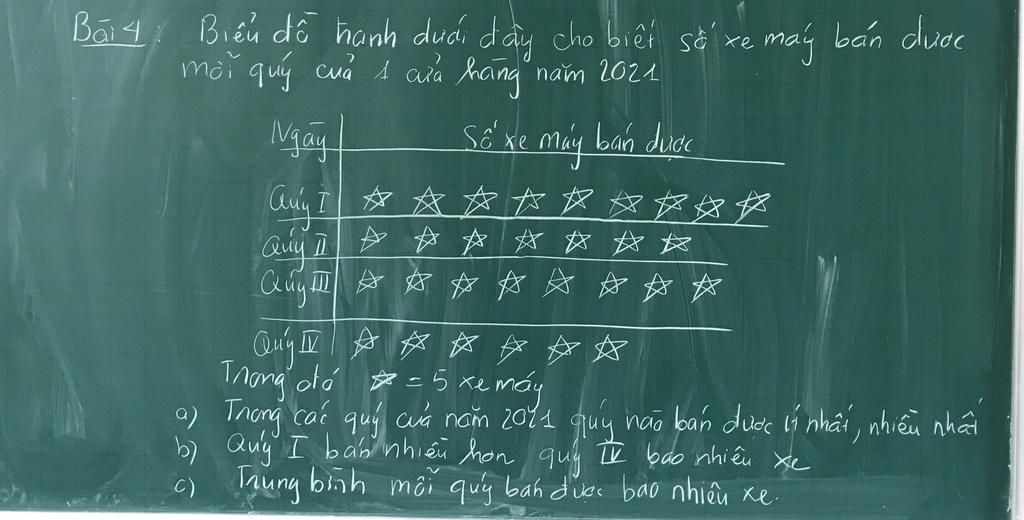 Bài 4: Biểu đồ tranh dưới đây cho biết số xe máy bán được
mỗi quý của 1 cửa hàng năm 2021
Ngày Số xe máy bán được
Quý I ☆ ☆ ☆ ☆ ☆ ☆ ☆ ☆ ☆
Quý II ☆ ☆ ☆ ☆ ☆ ☆ ☆
Quý III ☆ ☆ ☆ ☆ ☆ ☆ ☆ ☆
Quý IV ☆ ☆ ☆ ☆ ☆ ☆
Trong đó ☆ = 5 xe máy
a) Trong các quý của năm 2021 quý nào bán được ít nhất, nhiều nhất
b) Quý I bán nhiều hơn quý IV bao nhiêu xe
c) Trung bình mỗi quý bán được bao nhiêu xe.